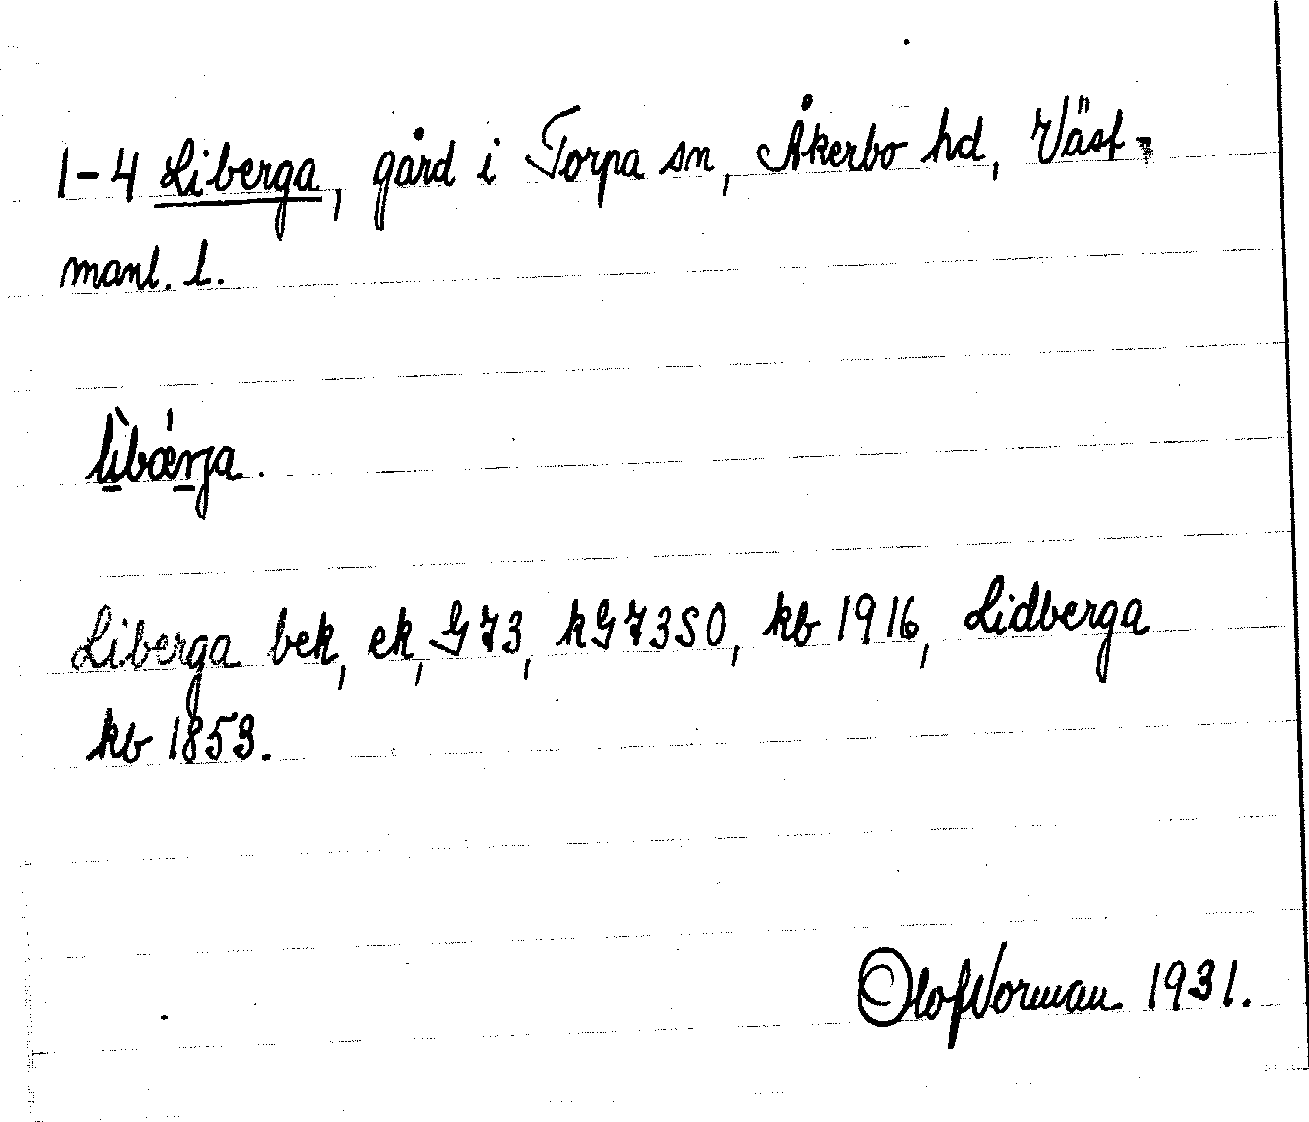 1-4 Liberga, gård i Torpa sn, Åkerbo hd, Väst-
manl. l.
lìbǽrja.
Liberga bek, ek, G73, kG73SO, kb 1916, Lidberga
kb 1853.
Olof Norman 1931.